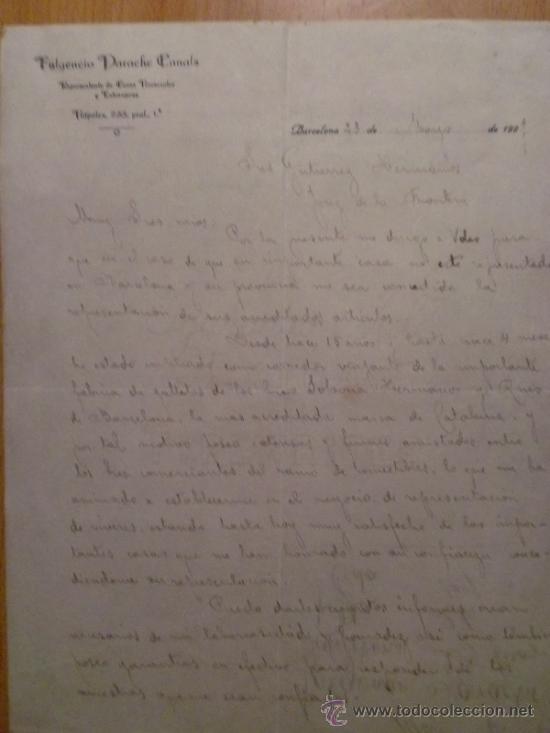 Fulgencio Parache Canals
Representante de Casas Nacionales
y Extranjeras
Nápoles, 233, pral, 1.ª
Barcelona 23 de Mayo de 192
Sres Gutierrez Hermanos
Jerez de la Frontera
Muy Sres mios:
Por la presente me dirijo a Vdes para
que en el caso de que su importante casa no esté representada
en Barcelona y su provincia me sea concedida la
representacion de sus acreditados articulos.
Desde hace 15 años, hasta hace 4 meses
he estado empleado como corredor viajante de la importante
fabrica de galletas de los Sres Solsona Hermanos y Rius
de Barcelona, la mas acreditada marca de Cataluña, y
por tal motivo poseo extensas y firmes amistades entre
los Sres comerciantes del ramo de comestibles, lo que me ha
animado a establecerme en el negocio de representacion
de viveres, estando hasta hoy muy satisfecho de las impor-
tantes casas que me han honrado con su confianza conce-
diendome su representacion.
Puedo darles cuantos informes crean
necesarios de mi laboriosidad y honradez asi como tambien
poseo garantias en efectivo para responder de las
muestras que me sean confiadas.
todocoleccion
www.todocoleccion.net